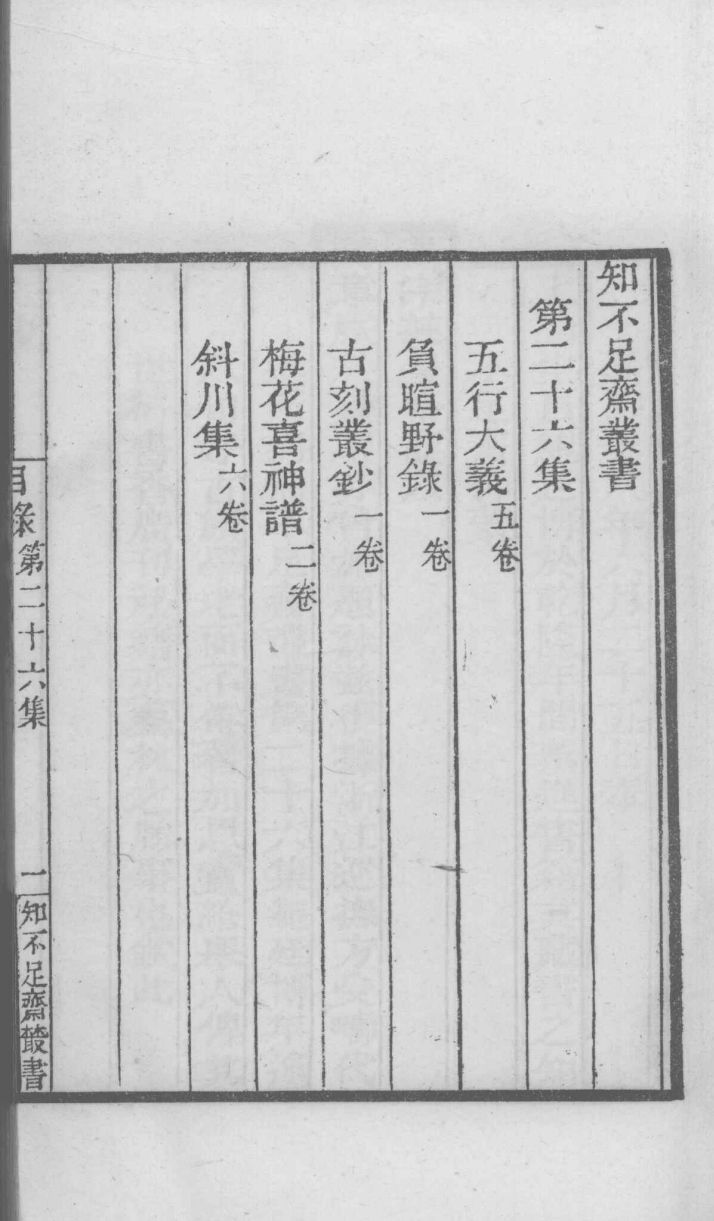 知不足齋叢書
第二十六集
五行大義五卷
負暄野錄一卷
古刻叢鈔一卷
梅花喜神譜二卷
斜川集六卷
目錄第二十六集 一 知不足齋叢書